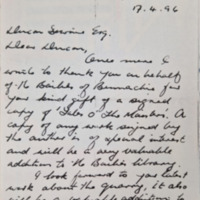 17.4.96
Duncan Esq.
Dear Duncan,
Once more I
write to thank you on behalf
of the Bailies of Bennachie for
your kind gift of a signed
copy of "Tales O' The Maskers". A
copy of any work signed by
the author is of special interest
and will be a very valuable
addition to the Bailies library.
I look forward to your latest
work about the quarry, it also
will be a addition to